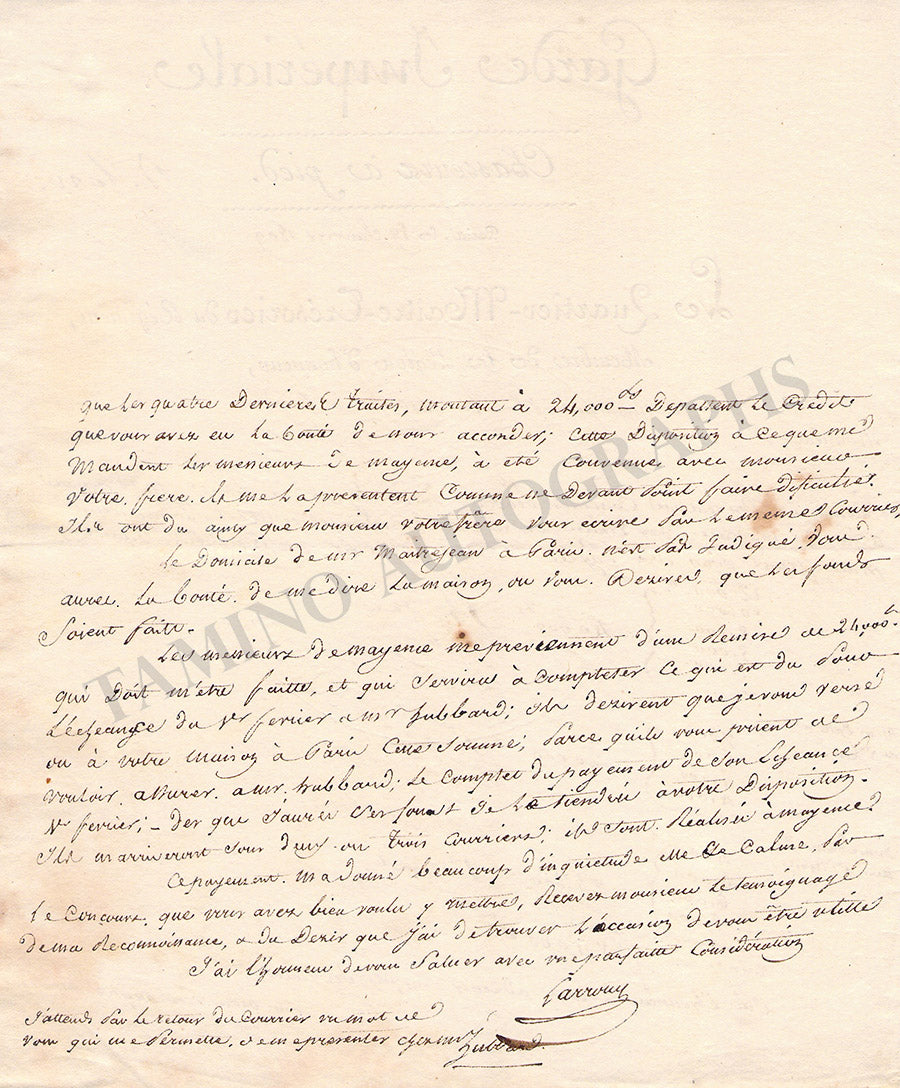 que les quatre Dernieres traites, montant à 24,000 ls Depassent Le Credit
que vous avez eu La bonté De nous accorder; Cette Disposition à ce que me
Mandent les messieurs De mayence, à été Convenue avec monsieur
Votre frere. ils me la presentent Comme ne Devant point faire dificulté.
Ils ont du ainsy que monsieur votre frère vous ecrire Par Le meme Courrier,
Le Domicile de mr Maitrejean à Paris n'est Pas Indiqué, Vous
aurez La bonté de me dire La maison, ou vous Dezirez que les fonds
Soient faits.
Les messieurs de mayence me previennent d'une Remise de 24,000 l
qui Doit m'etre faitte, et qui Servira à Completter Ce qui est du Pour
L'echeance du 1er fevrier a mr hubbard; ils dezirent que je vous verse
ou à votre maison à Paris Cette Somme; Parce qu'ils vous prient de
vouloir assurer a mr. hubbard; Le Complet du payement de Son Echeance
1er fevrier; – des que J'aurai Ces fonds Je Les tiendrai à votre Disposition.
Ils m'arriveront Sous deux ou Trois Courriers; ils Sont Réalisés à mayence
Ce payement m'a donné beaucoup d'inquietude Calme, Par
Le Concours que vous avez bien voulu y mettre, Recevez monsieur Le temoignage
de ma Reconnoissance, & du Dezir que J'ai de trouver L'occasion de vous être utille
J'ai L'honneur de vous Saluer avec une parfaitte Considération
Larrouy
J'attends Par le retour du Courrier un mot de
vous qui me Permette de me presenter chez mr
hubbard.
Garde Impériale
Chasseurs à pied.
Le Quartier-Maitre-Trésorier du
TAMINO AUTOGRAPHS